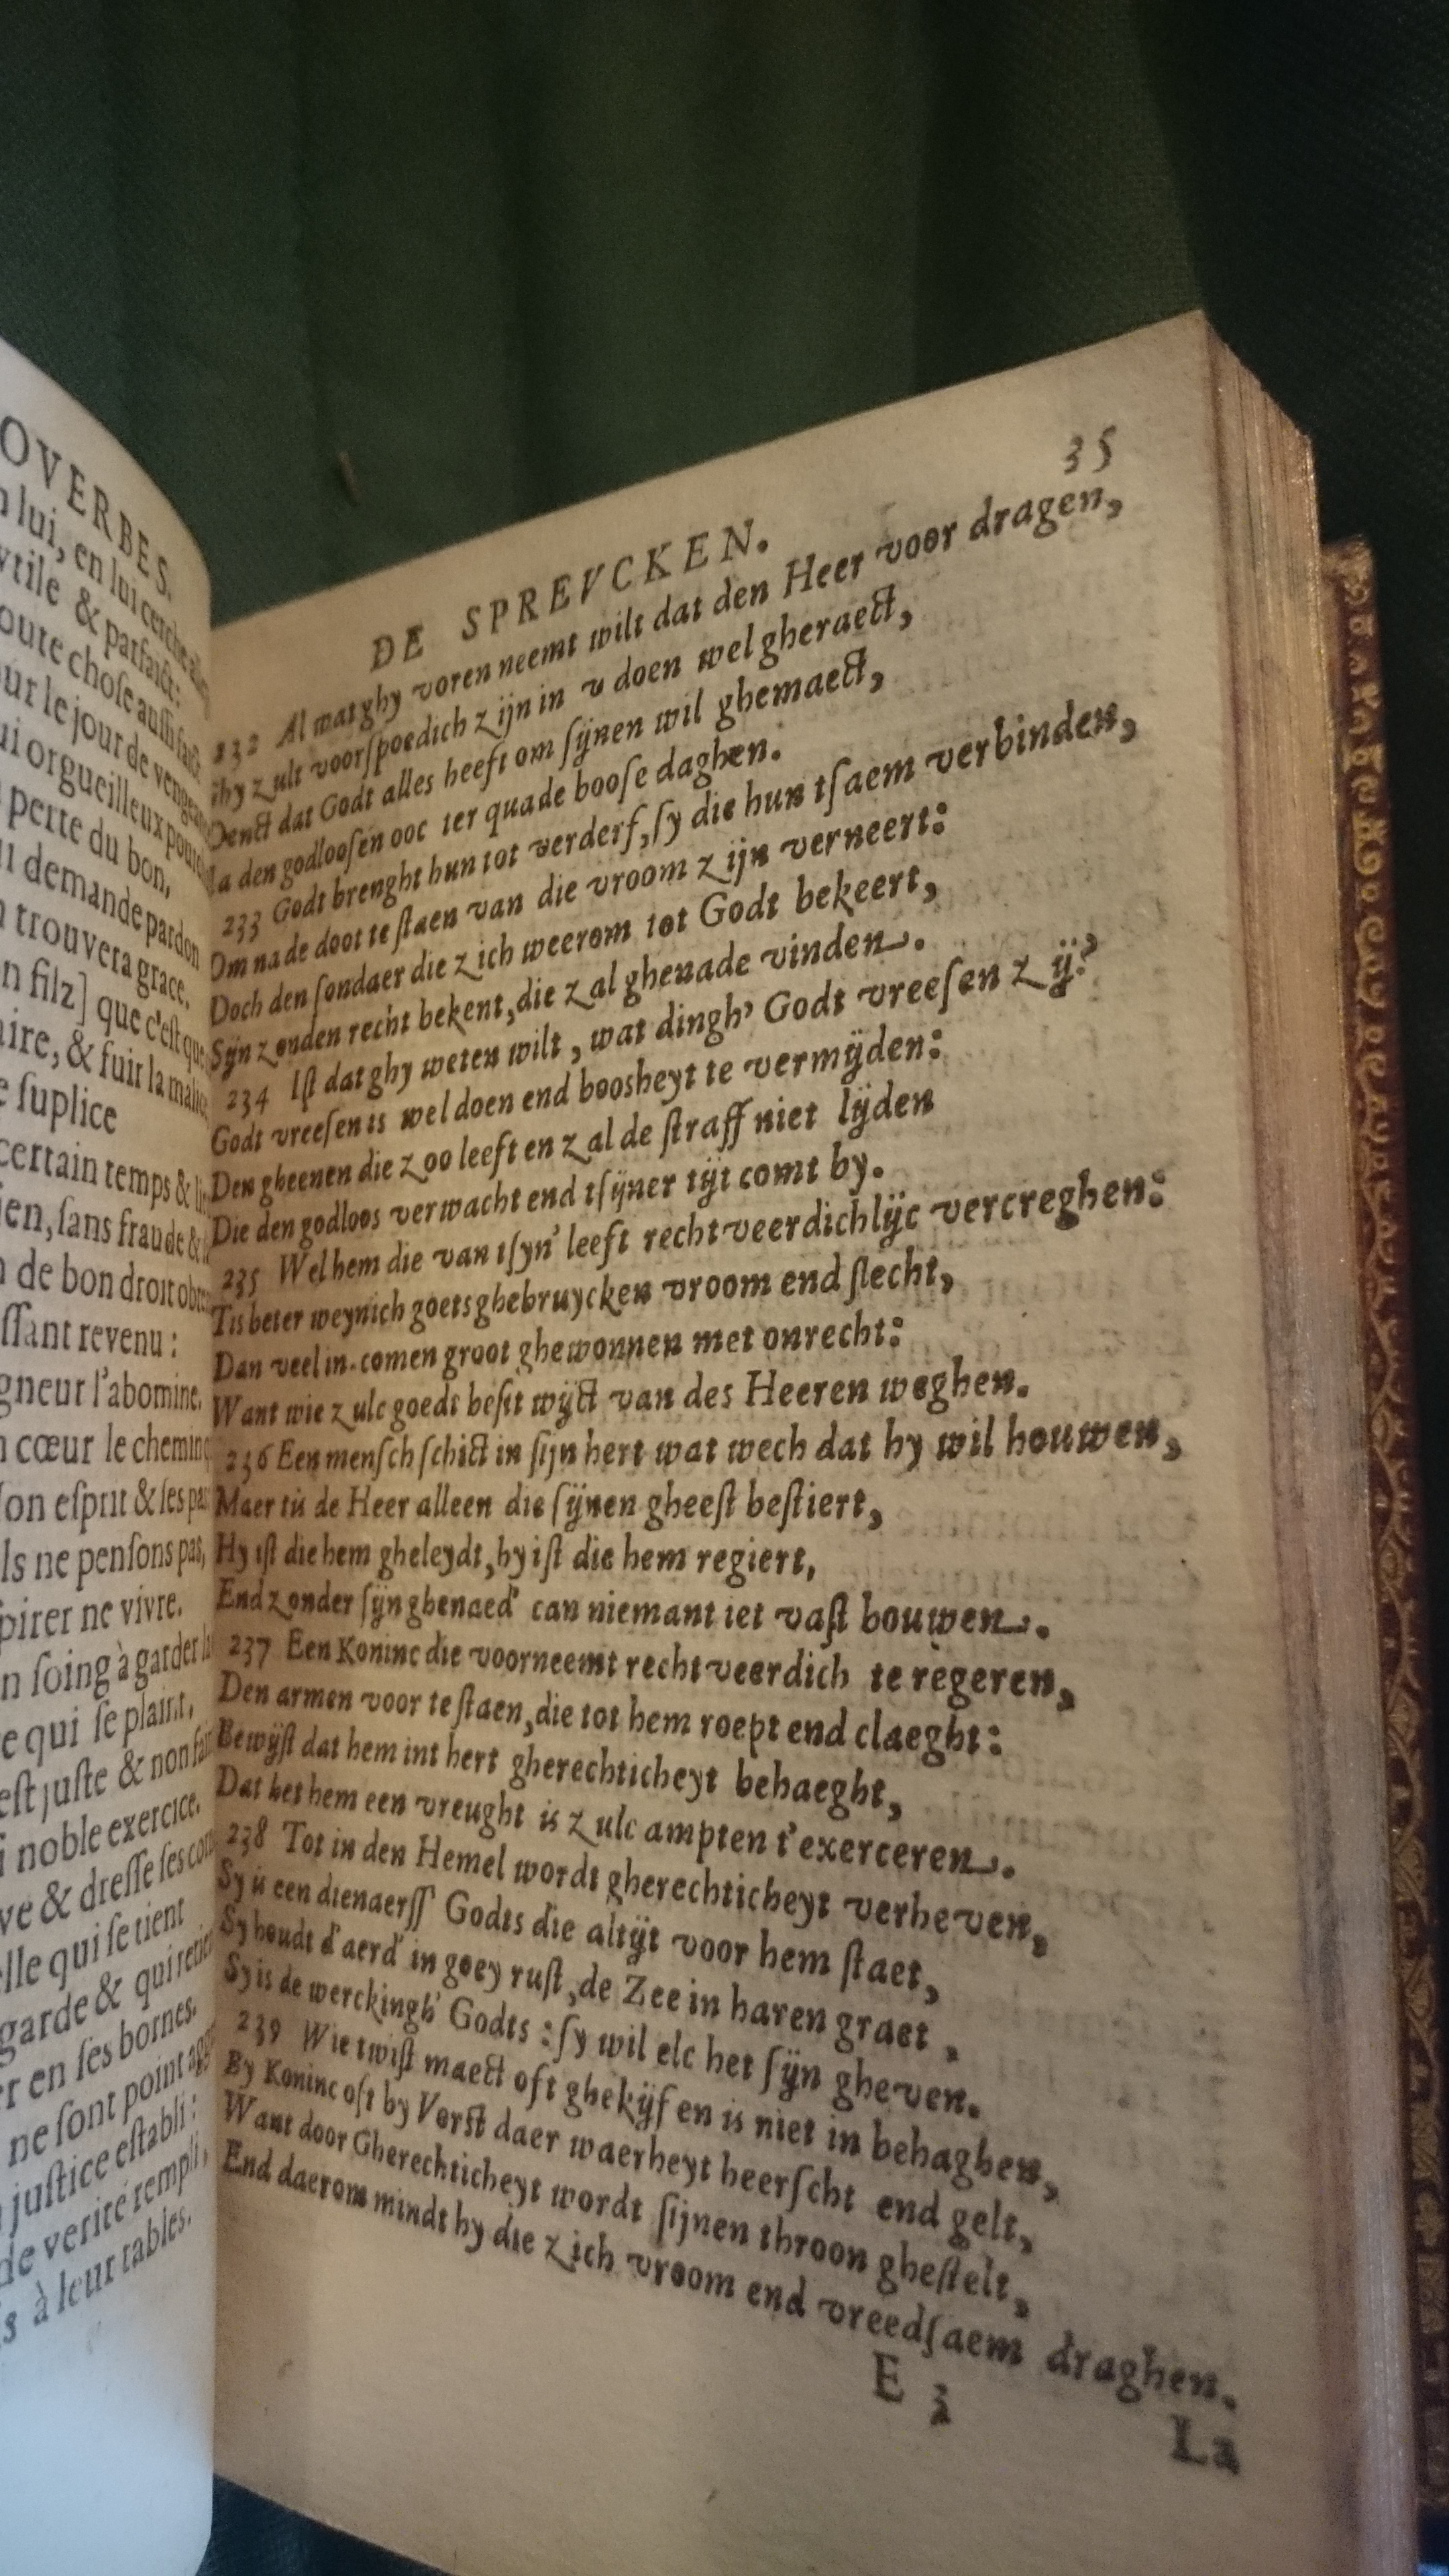 OVERBES.
lui, en lui cerche
vtile & parfaict:
oute chose aussi faict
ur le jour de vengeance
ui orgueilleux
perte du bon,
il demande pardon
trouvera grace.
n filz] que c'est que
aire, & fuir la malice
e suplice
certain temps &
ien, sans fraude &
de bon droit
ssant revenu:
gneur l'abomine.
cœur le chemin
son esprit & ses
ls ne pensons pas,
pirer ne vivre.
n soing à garder
e qui se plaint,
est juste & non
noble exercice.
ve & dresse ses
elle qui se tient
garde & qui
r en ses bornes.
ne sont point
justice establi:
de verité rempli,
s à leur tables.
35
DE SPREVCKEN.
232 Al wat ghy voren neemt wilt dat den Heer voor dragen,
Ghy zult voorspoedich zijn in v doen wel gheraect,
Denct dat Godt alles heeft om sijnen wil ghemaect,
Ja den godloosen ooc ter quade boose daghen.
233 Godt brenght hun tot verderf, sy die hun tsaem verbinden,
Om na de doot te staen van die vroom zijn verneert:
Doch den sondaer die zich weerom tot Godt bekeert,
Sijn zonden recht bekent, die zal ghenade vinden.
234 Ist dat ghy weten wilt, wat dingh' Godt vreesen zij?
Godt vreesen is wel doen end boosheyt te vermijden:
Den gheenen die zoo leeft en zal de straff niet lijden
Die den godloos verwacht end tsijner tijt comt by.
235 Wel hem die van tsyn' leeft rechtveerdichlijc vercreghen:
Tis beter weynich goets ghebruycken vroom end slecht,
Dan veel in-comen groot ghewonnen met onrecht:
Want wie zulc goedt besit wijct van des Heeren weghen.
236 Een mensch schict in sijn hert wat wech dat hy wil houwen,
Maer tis de Heer alleen die sijnen gheest bestiert,
Hy ist die hem gheleydt, hy ist die hem regiert,
End zonder sijn ghenaed' can niemant iet vast bouwen.
237 Een Koninc die voorneemt rechtveerdich te regeren,
Den armen voor te staen, die tot hem roept end claeght:
Bewijst dat hem int hert gherechticheyt behaeght,
Dat het hem een vreught is zulc ampten t'exerceren.
238 Tot in den Hemel wordt gherechticheyt verheven,
Sy is een dienaerss' Godts die altijt voor hem staet,
Sy houdt d'aerd' in goey rust, de Zee in haren graet,
Sy is de werckingh' Godts: sy wil elc het sijn gheven.
239 Wie twist maect oft ghekijf en is niet in behaghen,
By Koninc oft by Vorst daer waerheyt heerscht end gelt,
Want door Gherechticheyt wordt sijnen throon ghestelt,
End daerom mindt hy die zich vroom end vreedsaem draghen.
E 3
La